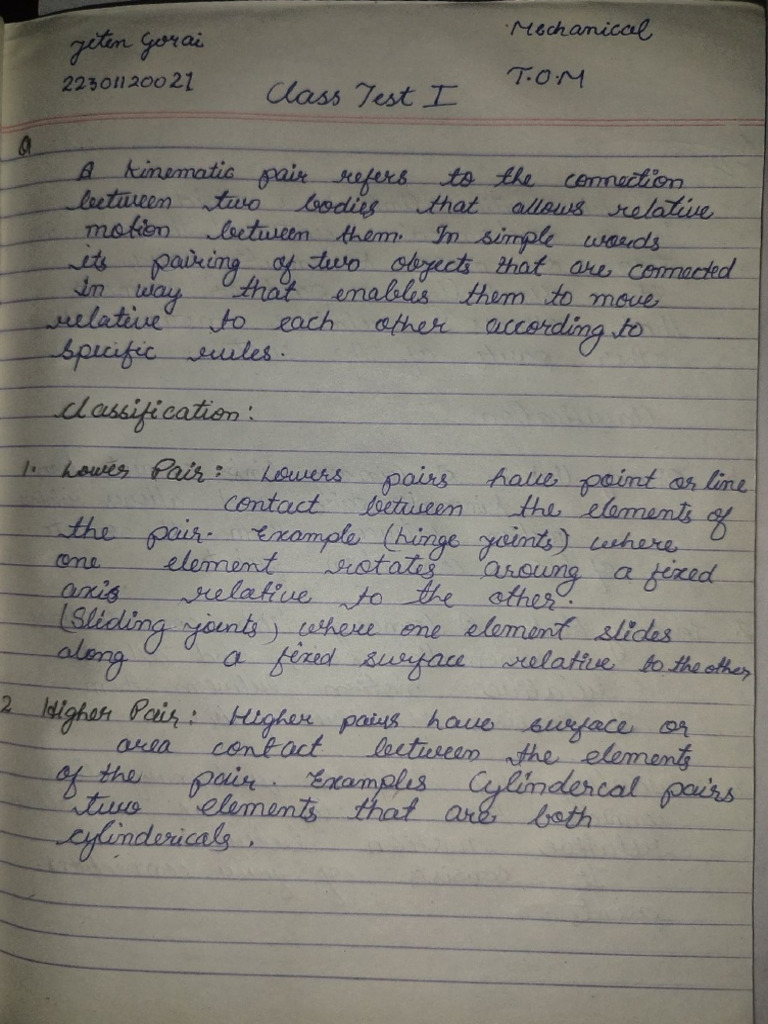 Jiten Gorai
Mechanical
22301120021
T.O.M
Class Test I
Q
A kinematic pair refers to the connection
between two bodies that allows relative
motion between them. In simple words
its pairing of two objects that are connected
in way that enables them to move
relative to each other according to
specific rules.
Classification:
1. Lower Pair: Lowers pairs have point or line
contact between the elements of
the pair. Example (hinge joints) where
one element rotates aroung a fixed
axis relative to the other.
(Sliding joints) where one element slides
along a fixed surface relative to the other
2 Higher Pair: Higher pairs have surface or
area contact between the elements
of the pair. Examples Cylindercal pairs
two elements that are both
cylindericals.